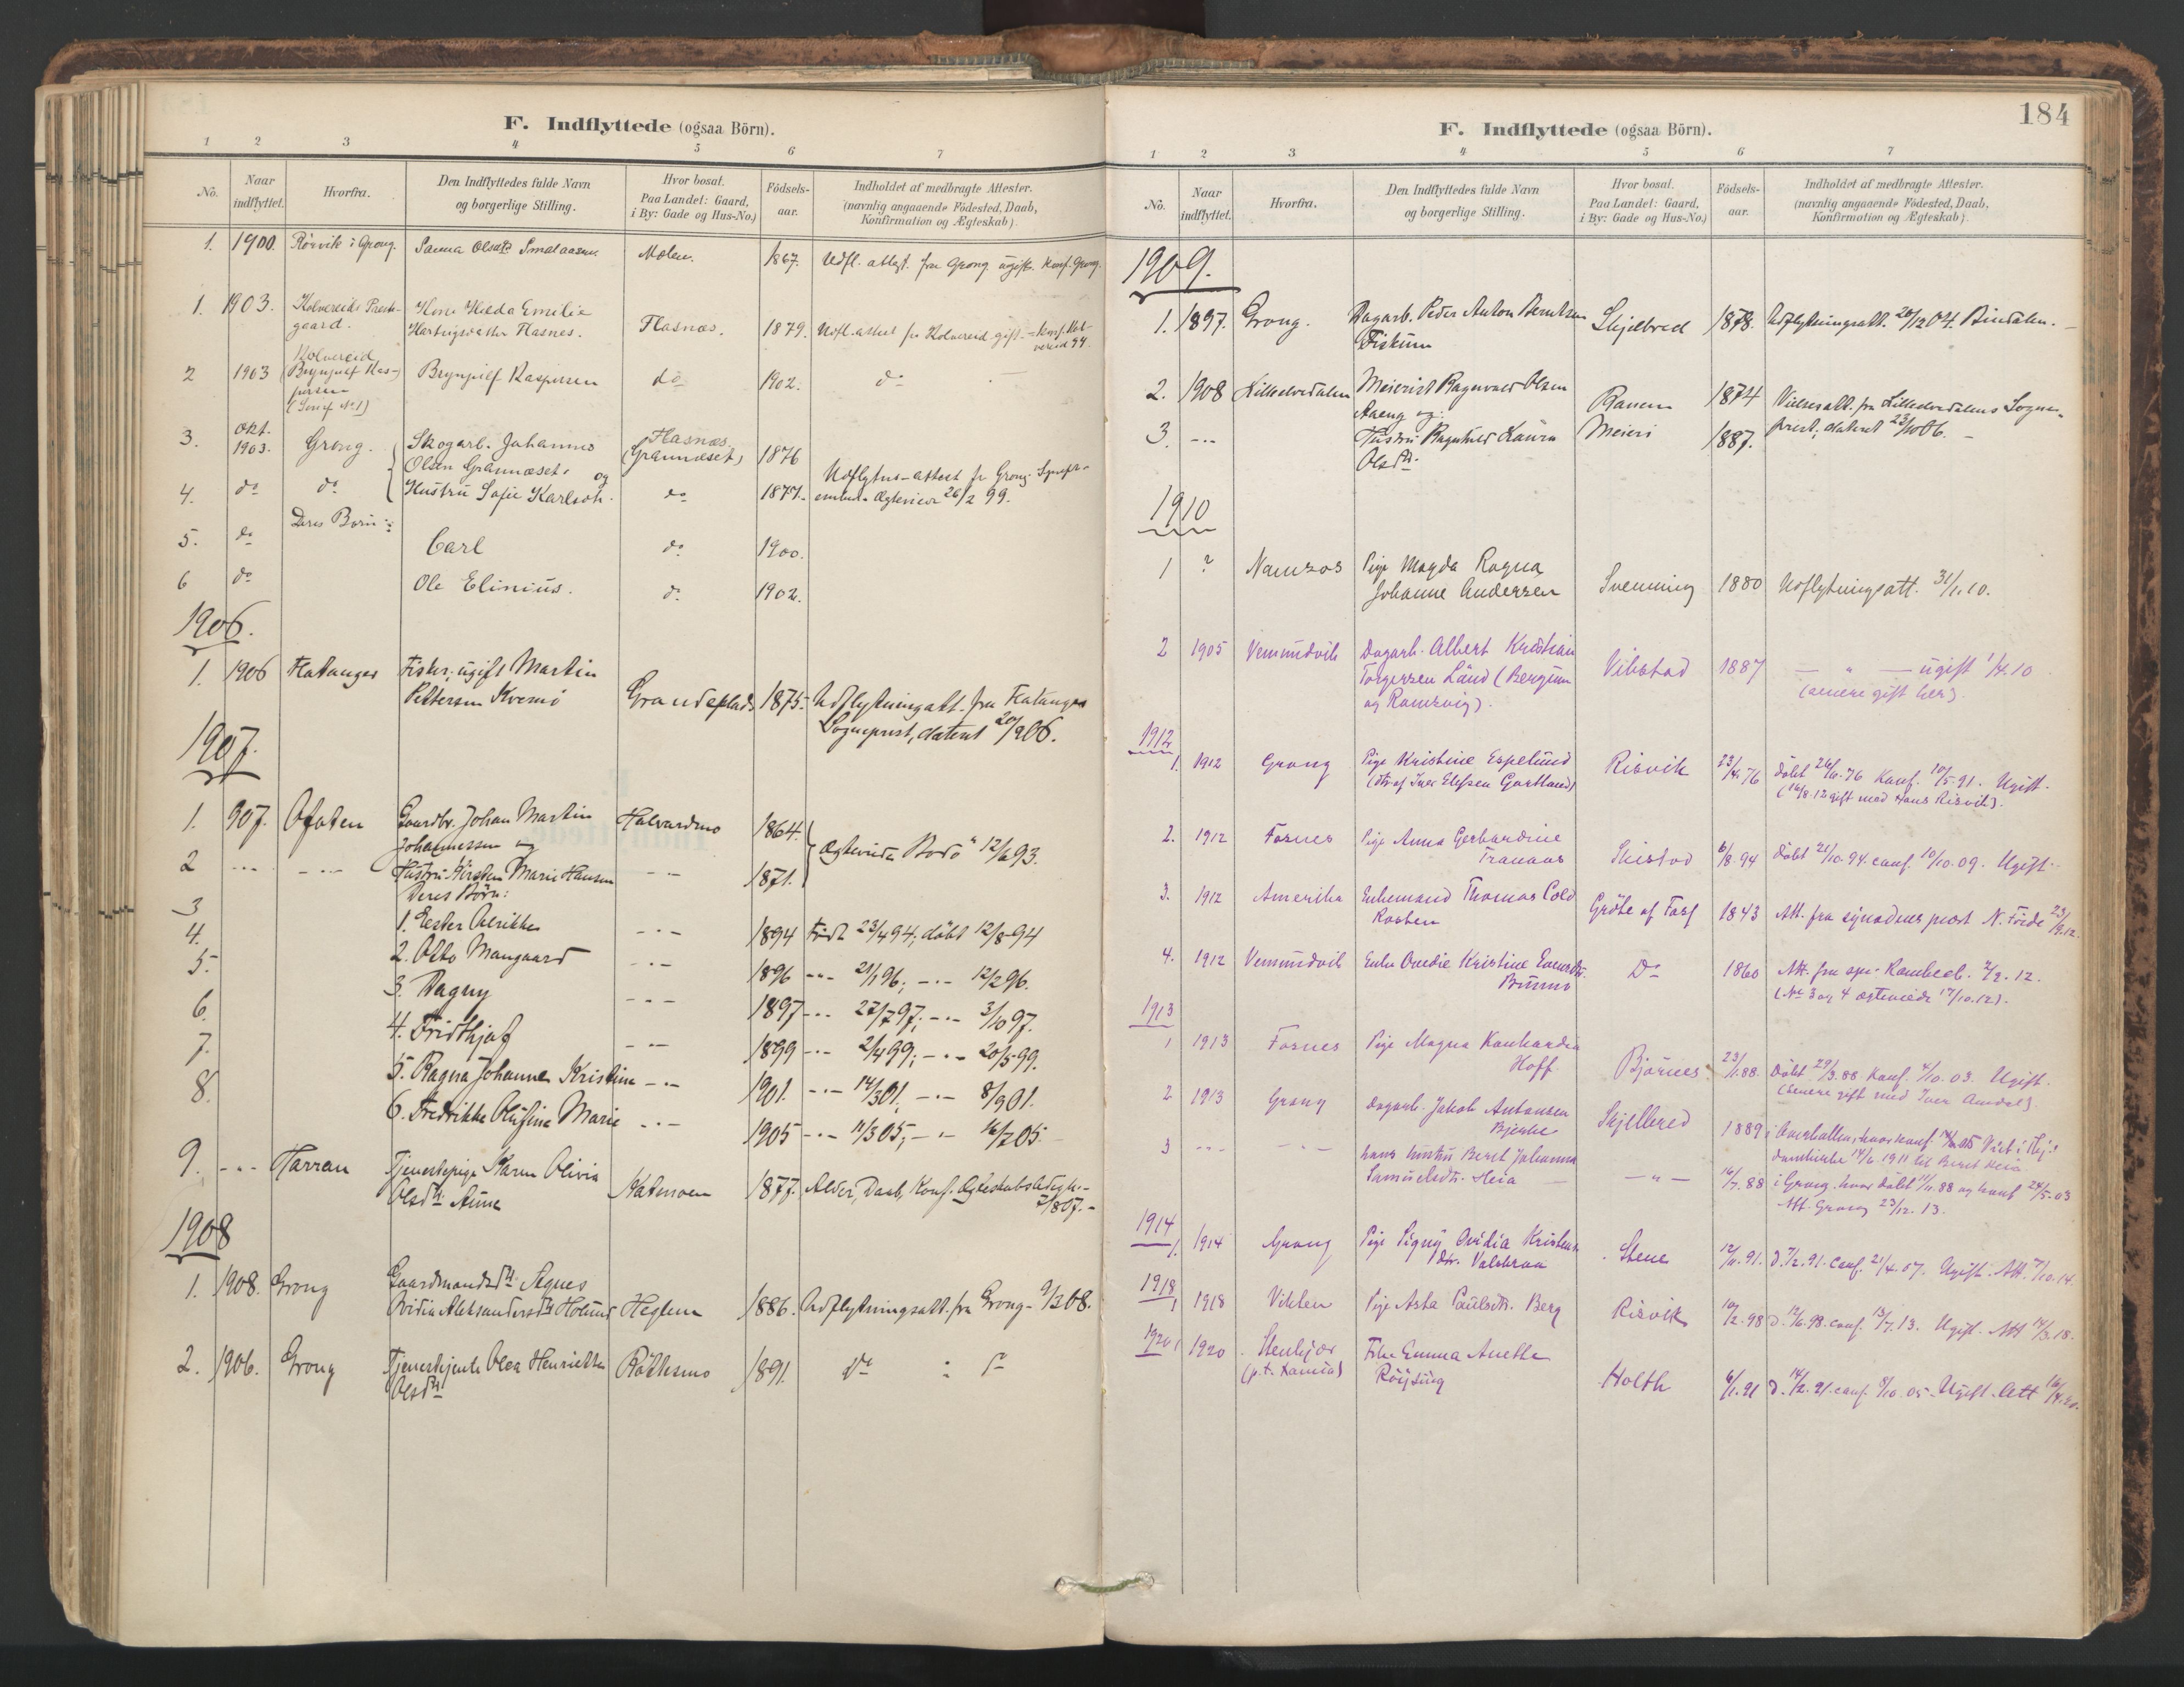 F. Indflyttede (ogsaa Börn).
1 2 3 4 5 6 7
No. Naar indflyttet. Hvorfra. Den Indflyttedes fulde Navn og borgerlige Stilling. Hvor bosat. Paa Landet: Gaard, i By: Gade og Hus-No.) Födsels-aar. Indholdet af medbragte Attester. (navnlig angaaende Födested, Daab, Konfirmation og Ægteskab).
1. 1900. Rörvik i Grong. Sanna Olsdtr Smalaasen. Molen. 1867. Udfl. attest. fra Grong ugift. Konf. Grong.
1. 1903. Kolvereids Præste- Kone Hilda Emilie
gaard. Hartvigsdatter Flasnes. Flasnes. 1879. Udfl. attest fr Kolvereid gift. Konf. Kol-
vereid 94.
Kolvereid
2 1903 (Brynjulf Kas- Brynjulf Kaspersen do 1902. do
persen
(Sønn af No 1)
3. Okt. 1903. Grong. Skogarb. Johannes Flasnes.
Olsen Grannæset. og (Grannæset) 1876
4. do do Hustru Sofie Karlsdtr. do 1877. Udflytn-attest fr Grong Sognepr-
embed. Ægteviede 26/2 99.
Deres Børn:
5. do Carl do 1900.
6 do Ole Elinius. do 1902.
1906.
1. 1906 Flatanger Fisker, ugift Martin
Pettersen Kvernö Grandeplads 1875. Udflytningsatt. fra Flatanger
Sogneprest, datert 20/2 06.
1907.
1. 907. Ofoten Gaardbr. Johan Martin Halvardmo 1864.
Johannessen og Ægteviede Bodö 12/6 93.
2 Hustru Kirsten Marie Hansen 1871.
Deres Børn:
3 1. Ester Ulrikke 1894 Födt 23/4 94, döbt 12/8 94
4. 2. Otto Mangaard 1896 21/1 96; 12/2 96.
5. 3. Dagny 1897 27/7 97; 3/10 97.
6. 4. Fridthjof 1899 2/4 99; 20/5 99.
7. 5. Ragna Johanne Kristine 1901. 14/3 01, 8/9 01.
8. 6. Fredrikke Olufine Marie 1905 11/3 05, 16/7 05.
9. Harran Tjenestepige Karen Olivia
Olsdtr Aune Hatmoen 1877. Alder, Daab, Konf. Ægteskabsledigh.
7/8 07.
1908
1. 1908. Grong Gaardmandsdtr. Agnes
Ovidia Aleksandersdtr Holmo Heglem 1886. Udflytningsatt. fra Grong 9/3 08.
2. 1906. Grong Tjenestejente Olea Henriette Råthesmo 1891. do
Olsdtr
184
F. Indflyttede (ogsaa Börn).
1 2 3 4 5 6 7
No. Naar indflyttet. Hvorfra. Den Indflyttedes fulde Navn og borgerlige Stilling. Hvor bosat. Paa Landet: Gaard, i By: Gade og Hus-No.) Födsels-aar. Indholdet af medbragte Attester. (navnlig angaaende Födested, Daab, Konfirmation og Ægteskab).
1909.
1. 1897. Grong. Dagarb. Peder Anton Berntsen Skjelbred 1878. Udflytningsatt. 20/12 04. Bindalen.
Fiskum
2. 1908 Lilleelvedalen Meierist Ragnvald Olsen
Aaeng og: Ranem 1874 Vielsesatt. fra Lilleelvedalens Sogne-
3. Hustru Ragnhild Laura Meieri 1887. prest, datert 23/10 06.
Olsdtr.
1910
1 ? Namsos Pige Magda Ragna
Johanne Anderssen Svenning 1880 Udflytningsatt. 31/1 10.
2 1905 Vemundvik Dagarb. Albert Kristian
Torgersen Laud (Bergum Vibstad 1887 ugift 1/4 10
og Ramsvig). (senere gift her).
1912
1. 1912 Grong Pige Kristine Espelund Risvik 23/4 76 Döbt 26/6 76 Konf. 10/5 91. Ugift.
(dtr. af Iver Elefsen Gartland) (16/8 12 gift med Hans Risvik).
2. 1912 Fosnes Pige Anna Gerhardine
Tranaas Skistad 6/8 94 Döbt 21/10 94. Conf. 10/10 09. Ugift.
3. 1912 Amerika Enkemand Thomas Cold Gröte af Fosf 1843 Att. fra synodens prest N. Förde 23/9 12.
Rosten
4. 1912 Vemundvik Enke Ovedie Kristine Evensdtr. Do 1860 Att. fra spr. Rambech. 2/9. 12.
Brunnö (No 3 og 4 ægteviede 17/10. 12).
1913
1 1913 Fosnes Pige Magna Konkordia
Hoff Björnes 23/1 88. Döbt 29/3. 88 Konf. 4/10. 03. Ugift.
(Senere gift med Iver Amdal).
2 1913 Grong Dagarb. Jakob Antonsen Skjelbred 1889 i Overhallen, hvor konf. 05 Viet i Hej-
Bjerke damkirke 14/6 1911 til Beret Heia
3 hans hustru Beret Johanna
Samuelsdtr. Heia 16/7. 88 i Grong, hvor döbt 11/11. 88 og konf 24/5. 03
Att. Grong 23/12. 13.
1914
1. 1914 Grong Pige Signy Ovidia Kristens Stene 12/11. 91. D. 7/2. 91. Conf. 21/4. 07. Ugift. Att. 7/10. 14.
dtr. Valskraa
1918
1 1918 Vikten Pige Asta Paulsdtr. Berg Risvik 10/2. 98 D. 12/6. 98. Conf. 13/7. 13. Ugift. Att 14/3. 18.
1920
1 1920 Stenkjær Frk. Emma Anette
(p.t. Hamia) Röysing Holth 6/1. 91 D. 14/2. 91. Conf. 8/10. 05. Ugift. Att 16/4. 20.